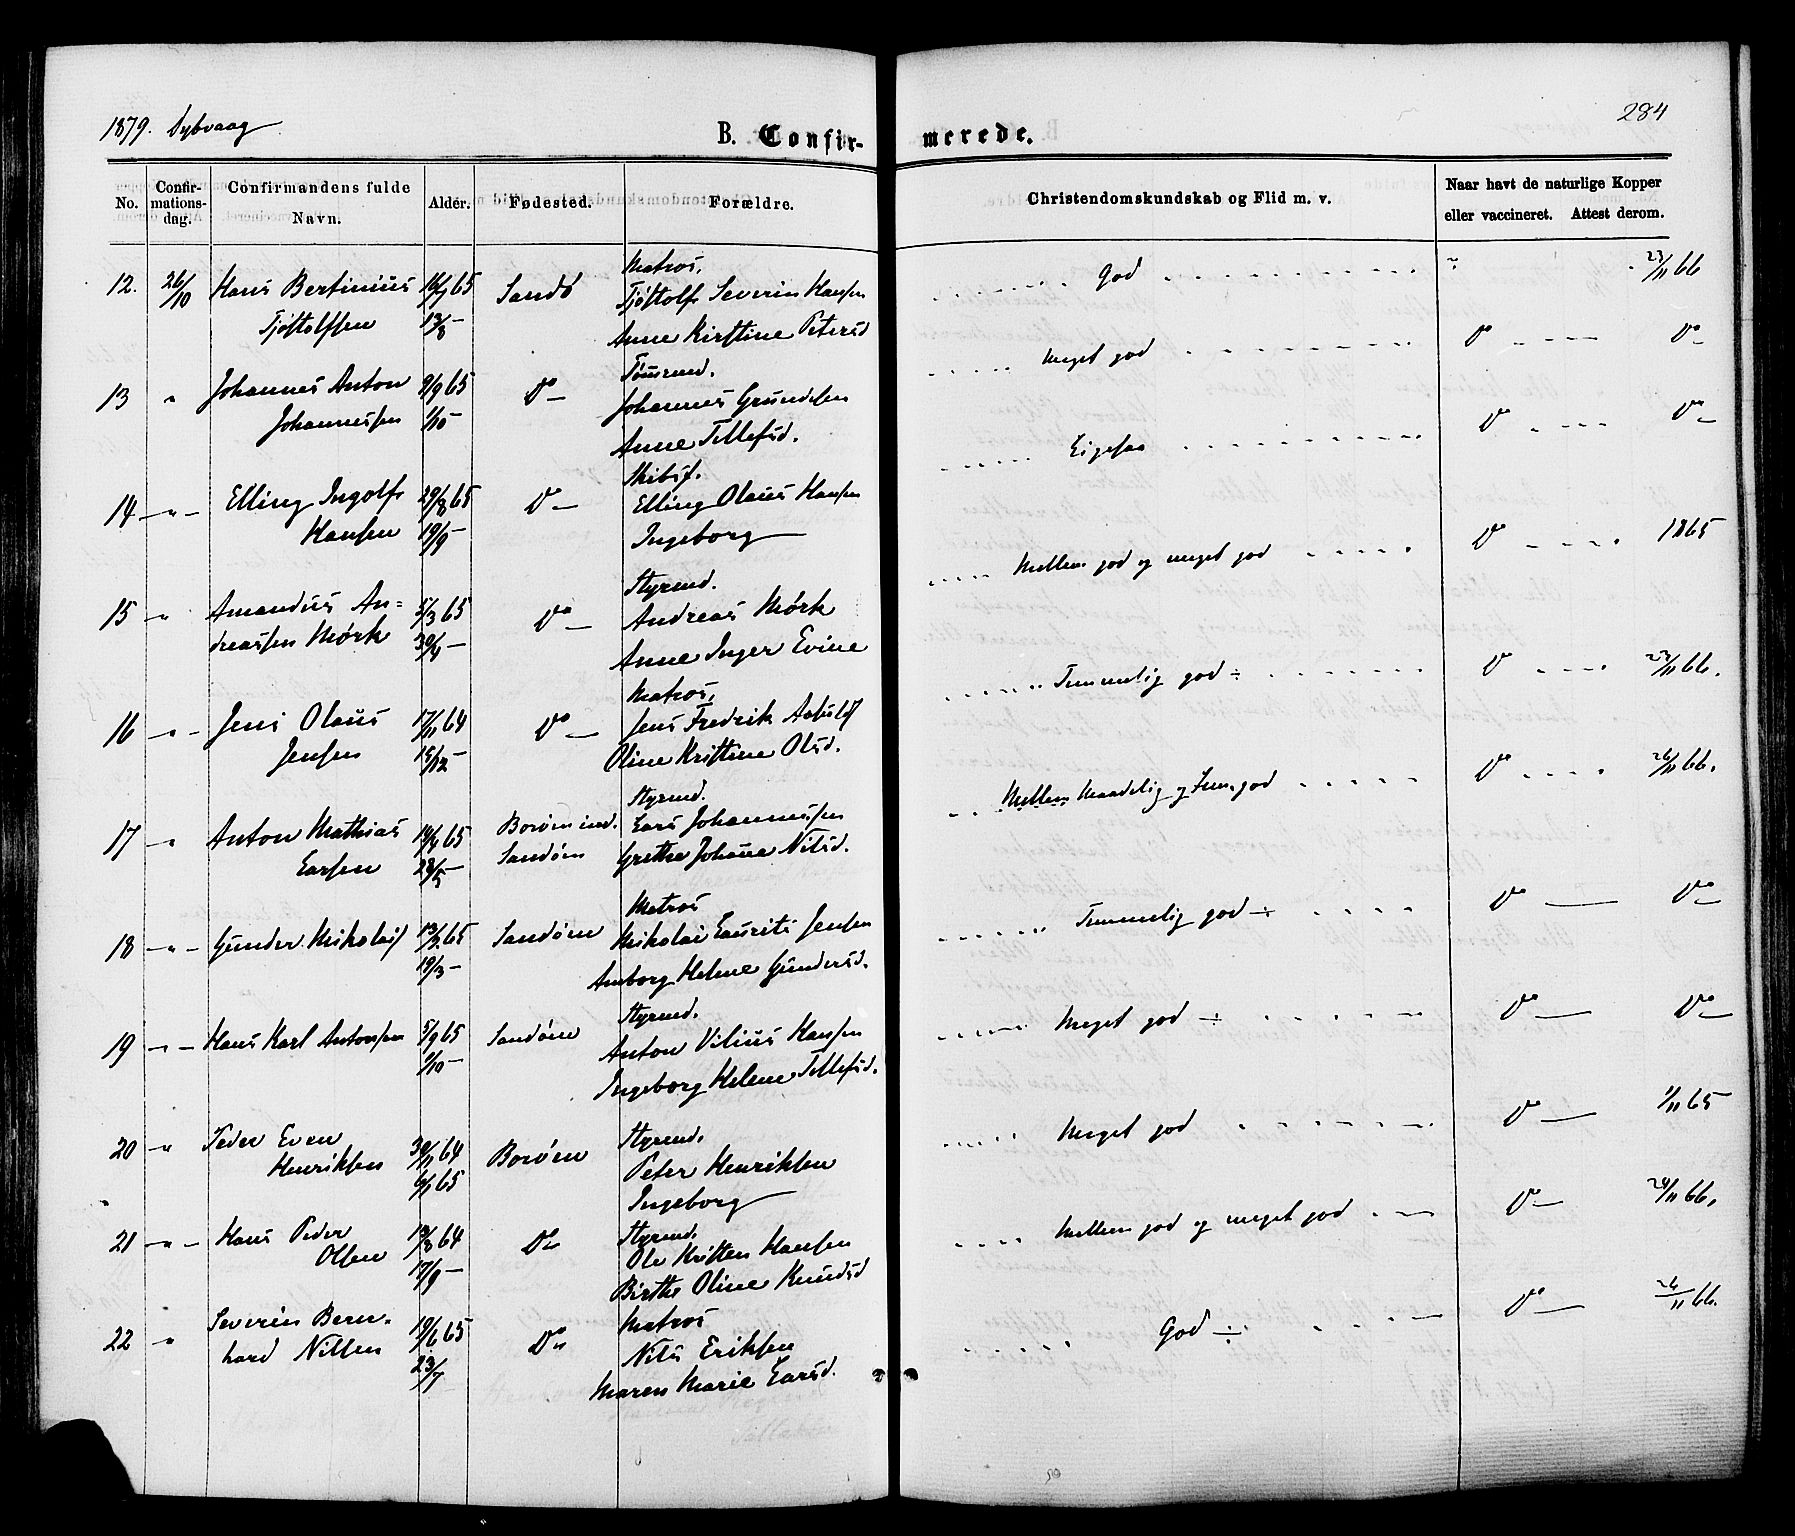 1879. Dybvaag
284
B. Confir-
merede.
No.
Confir-
mations-
dag.
Confirmandens fulde
Navn.
Alder.
Fødested.
Forældre.
Christendomskundskab og Flid m. v.
Naar havt de naturlige Kopper
eller vaccineret. Attest derom.
12. 26/10 Hans Bertinius 16/7 65 Sandø Matros,
Tjøstolfsen 13/8 – Tjøstolf Severin Hansen
Anne Kirstine Petersd
God 23/11 66
13 " Johannes Anton 9/9 65 Do – Tømmend.
Johannessen 1/10 – Johannes Grundesen
Anne Tellefsd.
Meget god Do Do –
14 – " – Elling Ingolf 29/8 65 Do – Skibsf.
Hansen 19/9 – Elling Olaus Hansen
Ingeborg
Ligesaa Do Do –
15 " Amandus An= 5/3 65 Do – Styrmd.
dreassen Mørk 30/4 – Andreas Mørk
Anne Inger Evine
Mellem god og meget god Do 1865
16 – " – Jens Olaus 17/11 64 Do – Matros,
Jensen 15/12 – Jens Fredrik
Oline Kristine Olsd.
Temmelig god ÷ Do 23/11 66.
17 – " Anton Mathias 14/4 65 Borøen ind. Styrmd.
Larsen 28/5 – Sandøen Lars Johannessen
Grethe Johanne Nilsd.
Mellem Maadelig og Tem. god Do 26/11 66.
18 – " – Gunder Nikolais 13/2 65 Sandøen Matros
19/3 – Nikolai Laurits Jensen
Amborg Helene Gundersd.
Temmelig god ÷ Do – Do –
19 – " – Hans Karl Antonsen 5/9 65 Sandøen Styrmd.
1/10 – Anton Vilius Hansen
Ingeborg Helene Tellefsd.
Meget god ÷ Do – Do –
20 – " Peder Even 30/11 64 Borøen Styrmd.
Henriksen 6/1 65 Peter Henriksen
Ingeborg
Meget god Do – 1/11 65
21 – " – Hans Peder 19/8 64 Do Styrmd.
Olsen 17/9 – Ole Kristen Hansen
Birthe Oline Knudsd
Mellem god og meget god Do – 24/11 66.
22 " Severin Bern- 19/6 65 Do Matros
hard Nilsen 23/7 Nils Eriksen
Maren Marie Larsd.
God ÷ Do – 26/11 66.